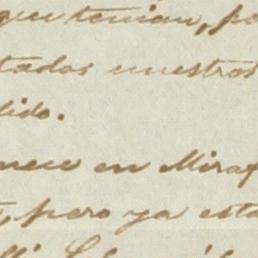 que tenian, po
tados nuestros
dido.
nece en Miraf
pero ya esta